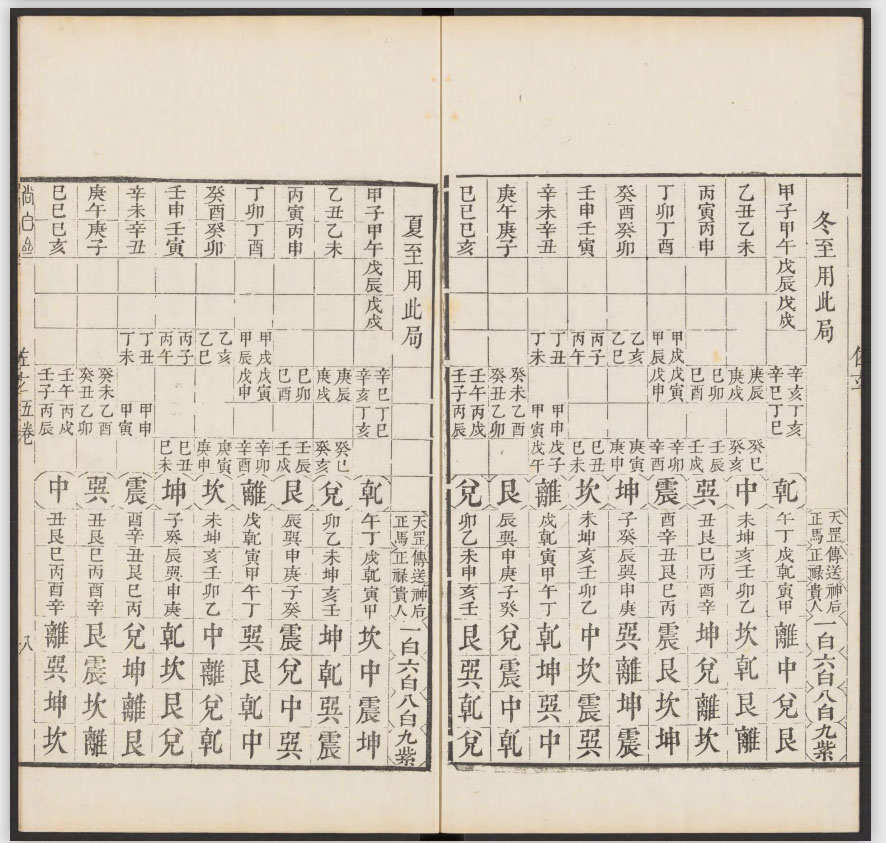 冬至用此局
天罡傳送神后
正馬正祿貴人
一白六白八白九紫
甲子甲午戊辰戊戌
辛亥丁亥
辛巳丁巳
乾
午丁戌乾寅甲
離中兌艮
乙丑乙未
庚辰
庚戌
癸巳
癸亥
中
未坤亥壬卯乙
坎乾艮離
丙寅丙申
己卯
己酉
壬辰
壬戌
巽
丑艮巳丙酉辛
坤兌離坎
丁卯丁酉
甲戌戊寅
甲辰戊申
辛卯
辛酉
震
酉辛丑艮巳丙
震艮坎坤
癸酉癸卯
乙亥
乙巳
庚寅
庚申
坤
子癸辰巽申庚
巽離坤震
壬申壬寅
丙子
丙午
己丑
己未
坎
未坤亥壬卯乙
中坎震巽
辛未辛丑
丁丑
丁未
甲申戊子
甲寅戊午
離
戌乾寅甲午丁
乾坤巽中
庚午庚子
癸未乙酉
癸丑乙卯
艮
辰巽申庚子癸
兌震中乾
己巳己亥
壬午丙戌
壬子丙辰
兌
卯乙未申亥壬
艮巽乾兌
夏至用此局
天罡傳送神后
正馬正祿貴人
一白六白八白九紫
甲子甲午戊辰戊戌
辛巳丁巳
辛亥丁亥
乾
午丁戌乾寅甲
坎中震坤
乙丑乙未
庚辰
庚戌
癸巳
癸亥
兌
卯乙未坤亥壬
坤乾巽震
丙寅丙申
己卯
己酉
壬辰
壬戌
艮
辰巽申庚子癸
震兌中巽
丁卯丁酉
甲戌戊寅
甲辰戊申
辛卯
辛酉
離
戌乾寅甲午丁
巽艮乾中
癸酉癸卯
乙亥
乙巳
庚寅
庚申
坎
未坤亥壬卯乙
中離兌乾
壬申壬寅
丙子
丙午
己丑
己未
坤
子癸辰巽申庚
乾坎艮兌
辛未辛丑
丁丑
丁未
甲申
甲寅
震
酉辛丑艮巳丙
兌坤離艮
庚午庚子
癸未乙酉
癸丑乙卯
巽
丑艮巳丙酉辛
艮震坎離
己巳己亥
壬午丙戌
壬子丙辰
中
丑艮巳丙酉辛
離巽坤坎
五卷
八